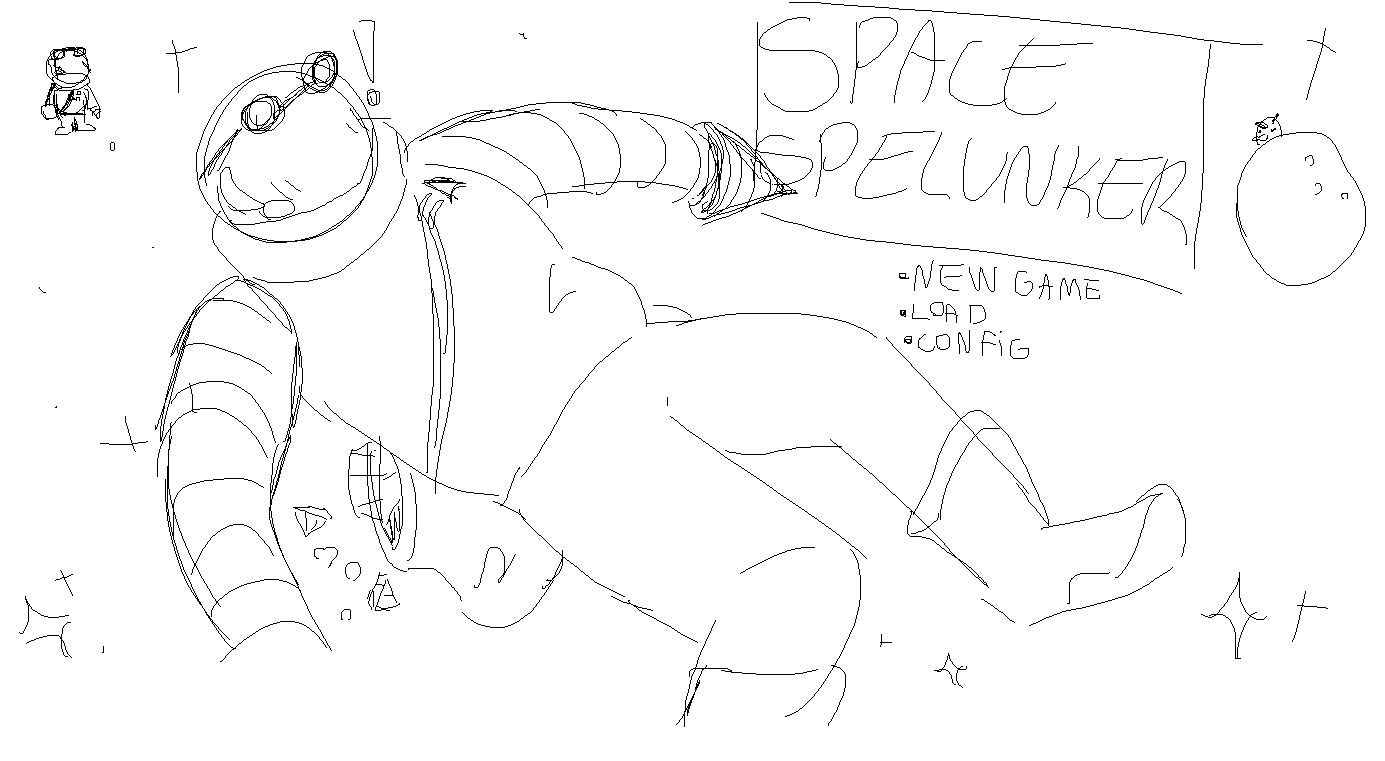 SPACE
SPELUNKER
NEW GAME
LOAD
CONFiG